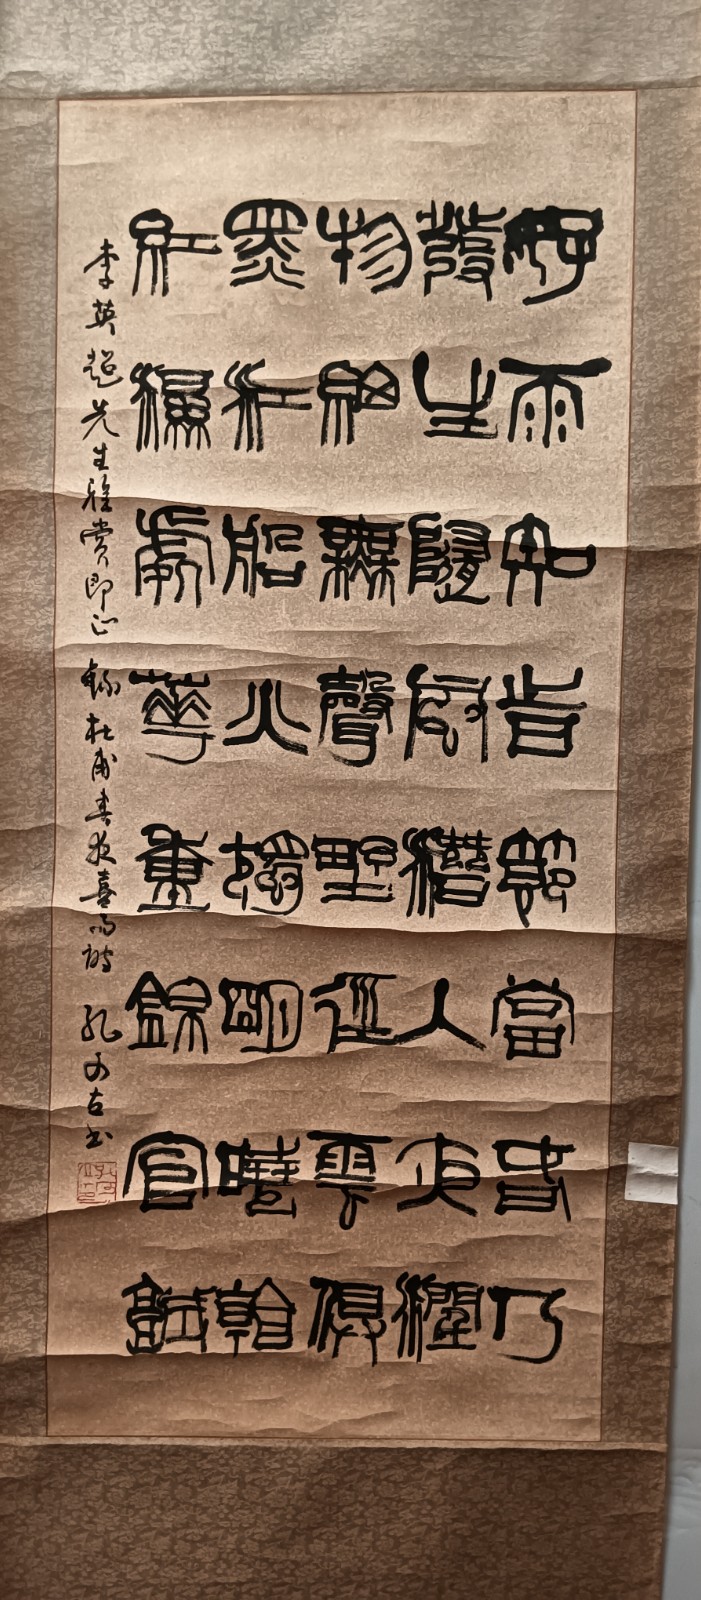 好雨知旹節當春乃
發生隨風潛入夜潤
物細無聲野徑雲俱
黑江船火獨明曉看
紅濕處華重錦官城
李英超先生雅赏即正 録杜甫春夜喜雨詩 孔 古书